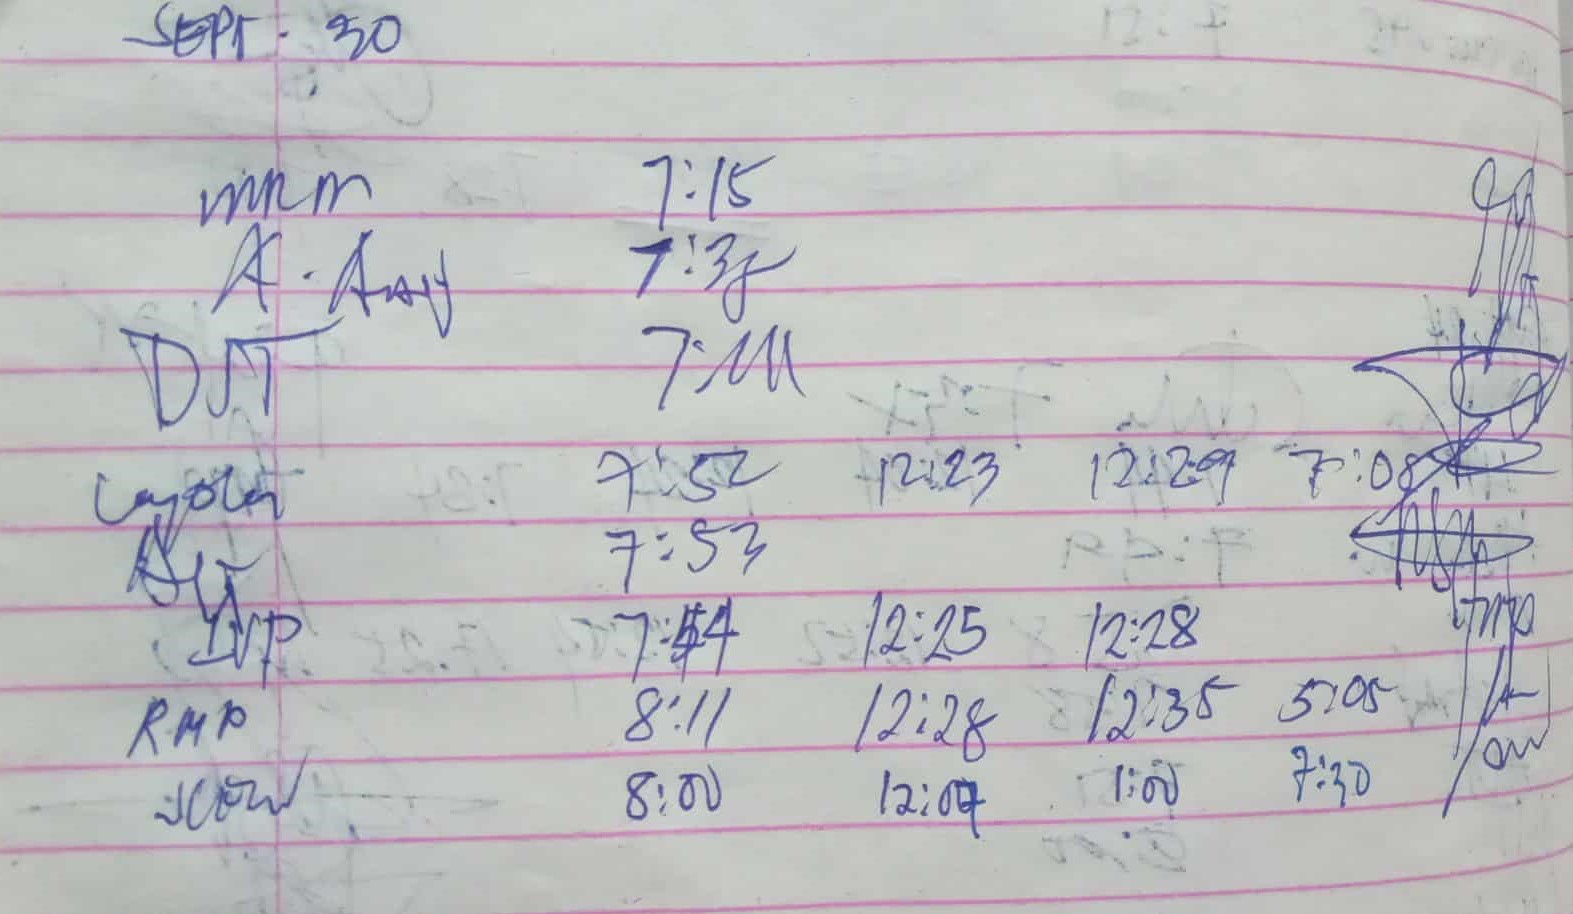 SEPT. 30
MRM 7:15
A. 7:38
DJT
Loyola 7:52 12:23 12:29 7:08
7:53
IVP 7:54 12:25 12:28
RMP 8:11 12:28 12:35 5:05
8:00 12:07 1:00 7:30